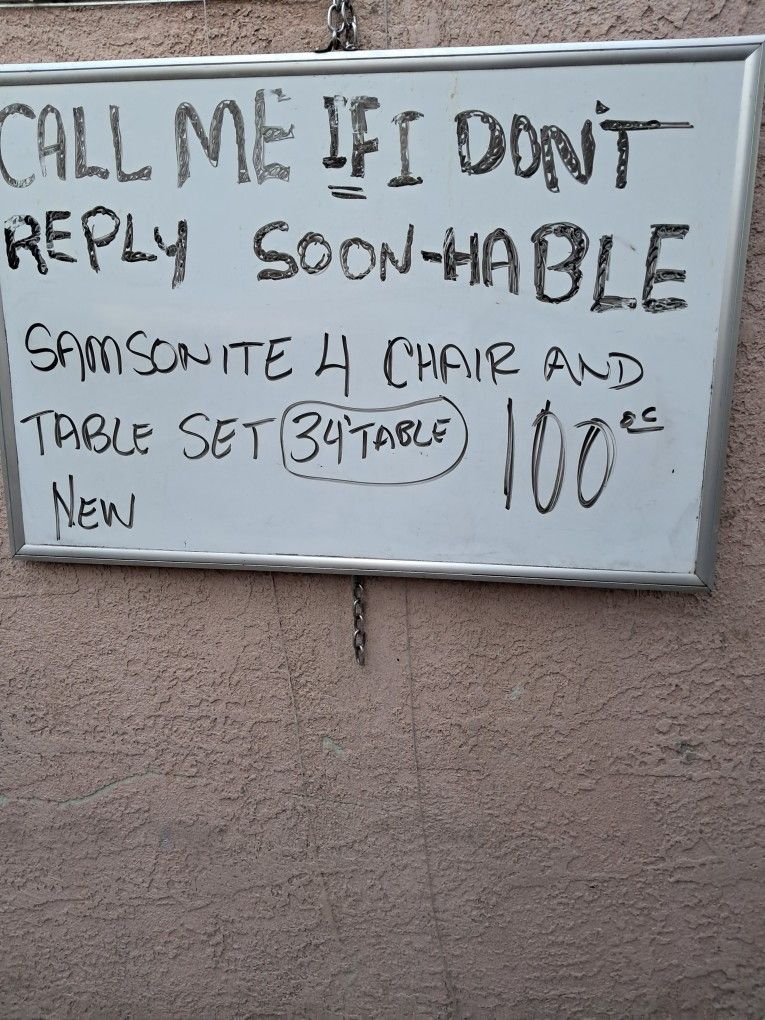 CALL ME IF I DON'T
REPLY SOON-HABLE
SAMSONITE 4 CHAIR AND
TABLE SET 34" TABLE 100
NEW